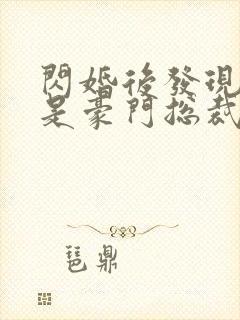 閃婚後發現
是豪門總裁
琶鼎